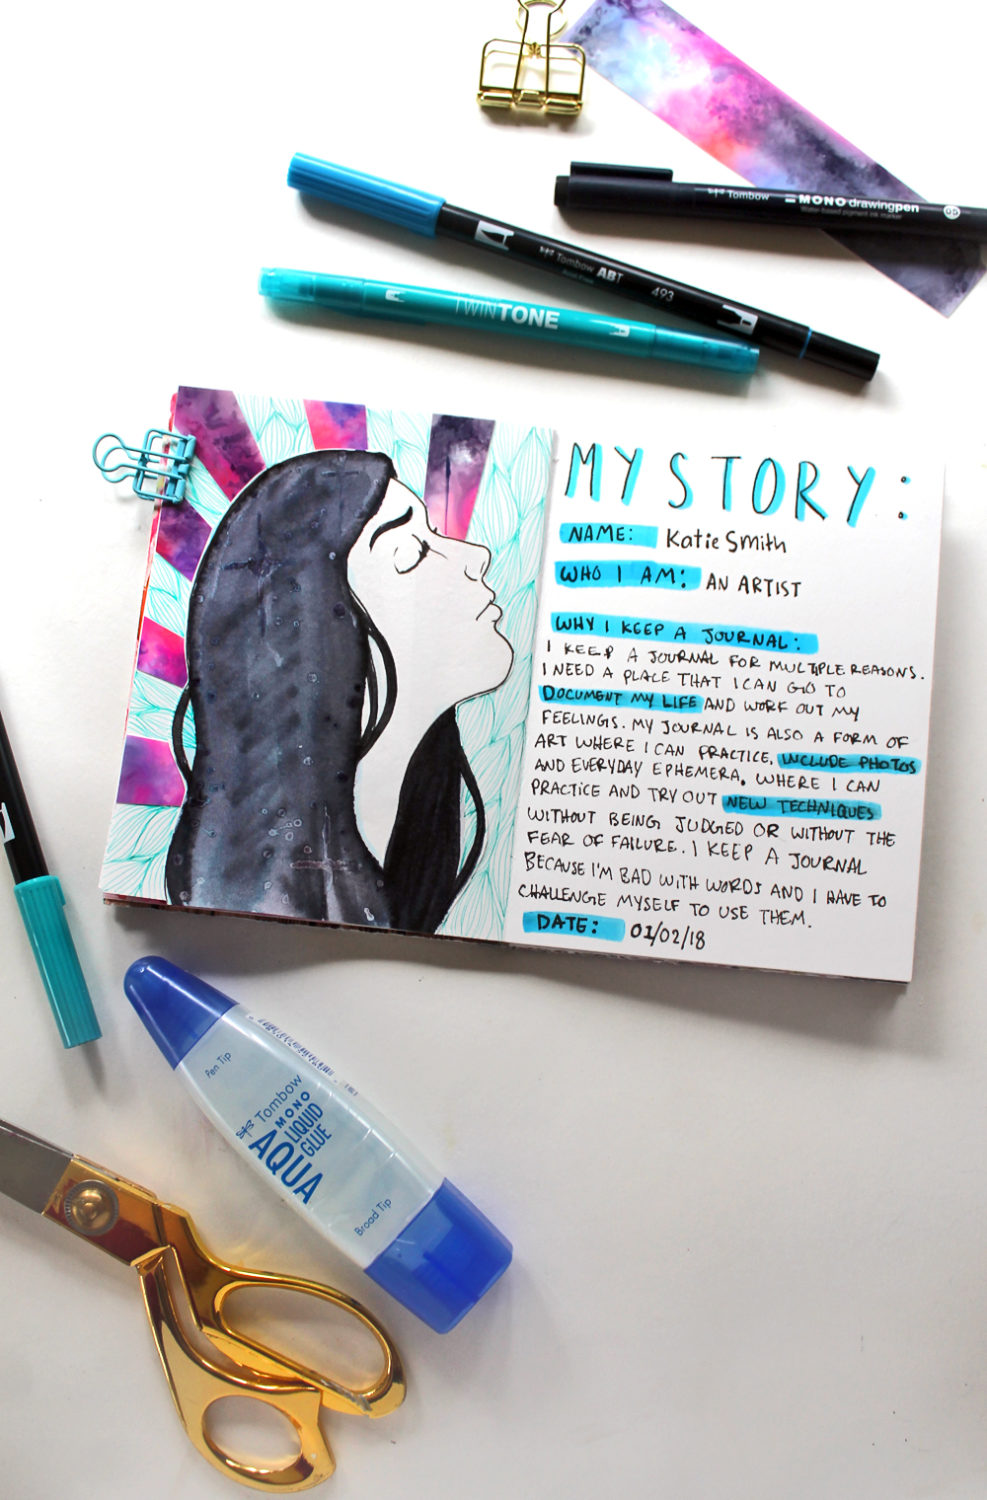 Tombow MONO drawingpen 05
Water-based pigment ink marker
Tombow ABT 493
TWINTONE
MY STORY:
NAME: Katie Smith
WHO I AM: AN ARTIST
WHY I KEEP A JOURNAL:
I KEEP A JOURNAL FOR MULTIPLE REASONS.
I NEED A PLACE THAT I CAN GO TO
DOCUMENT MY LIFE AND WORK OUT MY
FEELINGS. MY JOURNAL IS ALSO A FORM OF
ART WHERE I CAN PRACTICE, INCLUDE PHOTOS
AND EVERYDAY EPHEMERA. WHERE I CAN
PRACTICE AND TRY OUT NEW TECHNIQUES
WITHOUT BEING JUDGED OR WITHOUT THE
FEAR OF FAILURE. I KEEP A JOURNAL
BECAUSE I'M BAD WITH WORDS AND I HAVE TO
CHALLENGE MYSELF TO USE THEM.
DATE: 01/02/18
Pen Tip
Tombow
MONO
LIQUID
GLUE
AQUA
Broad Tip